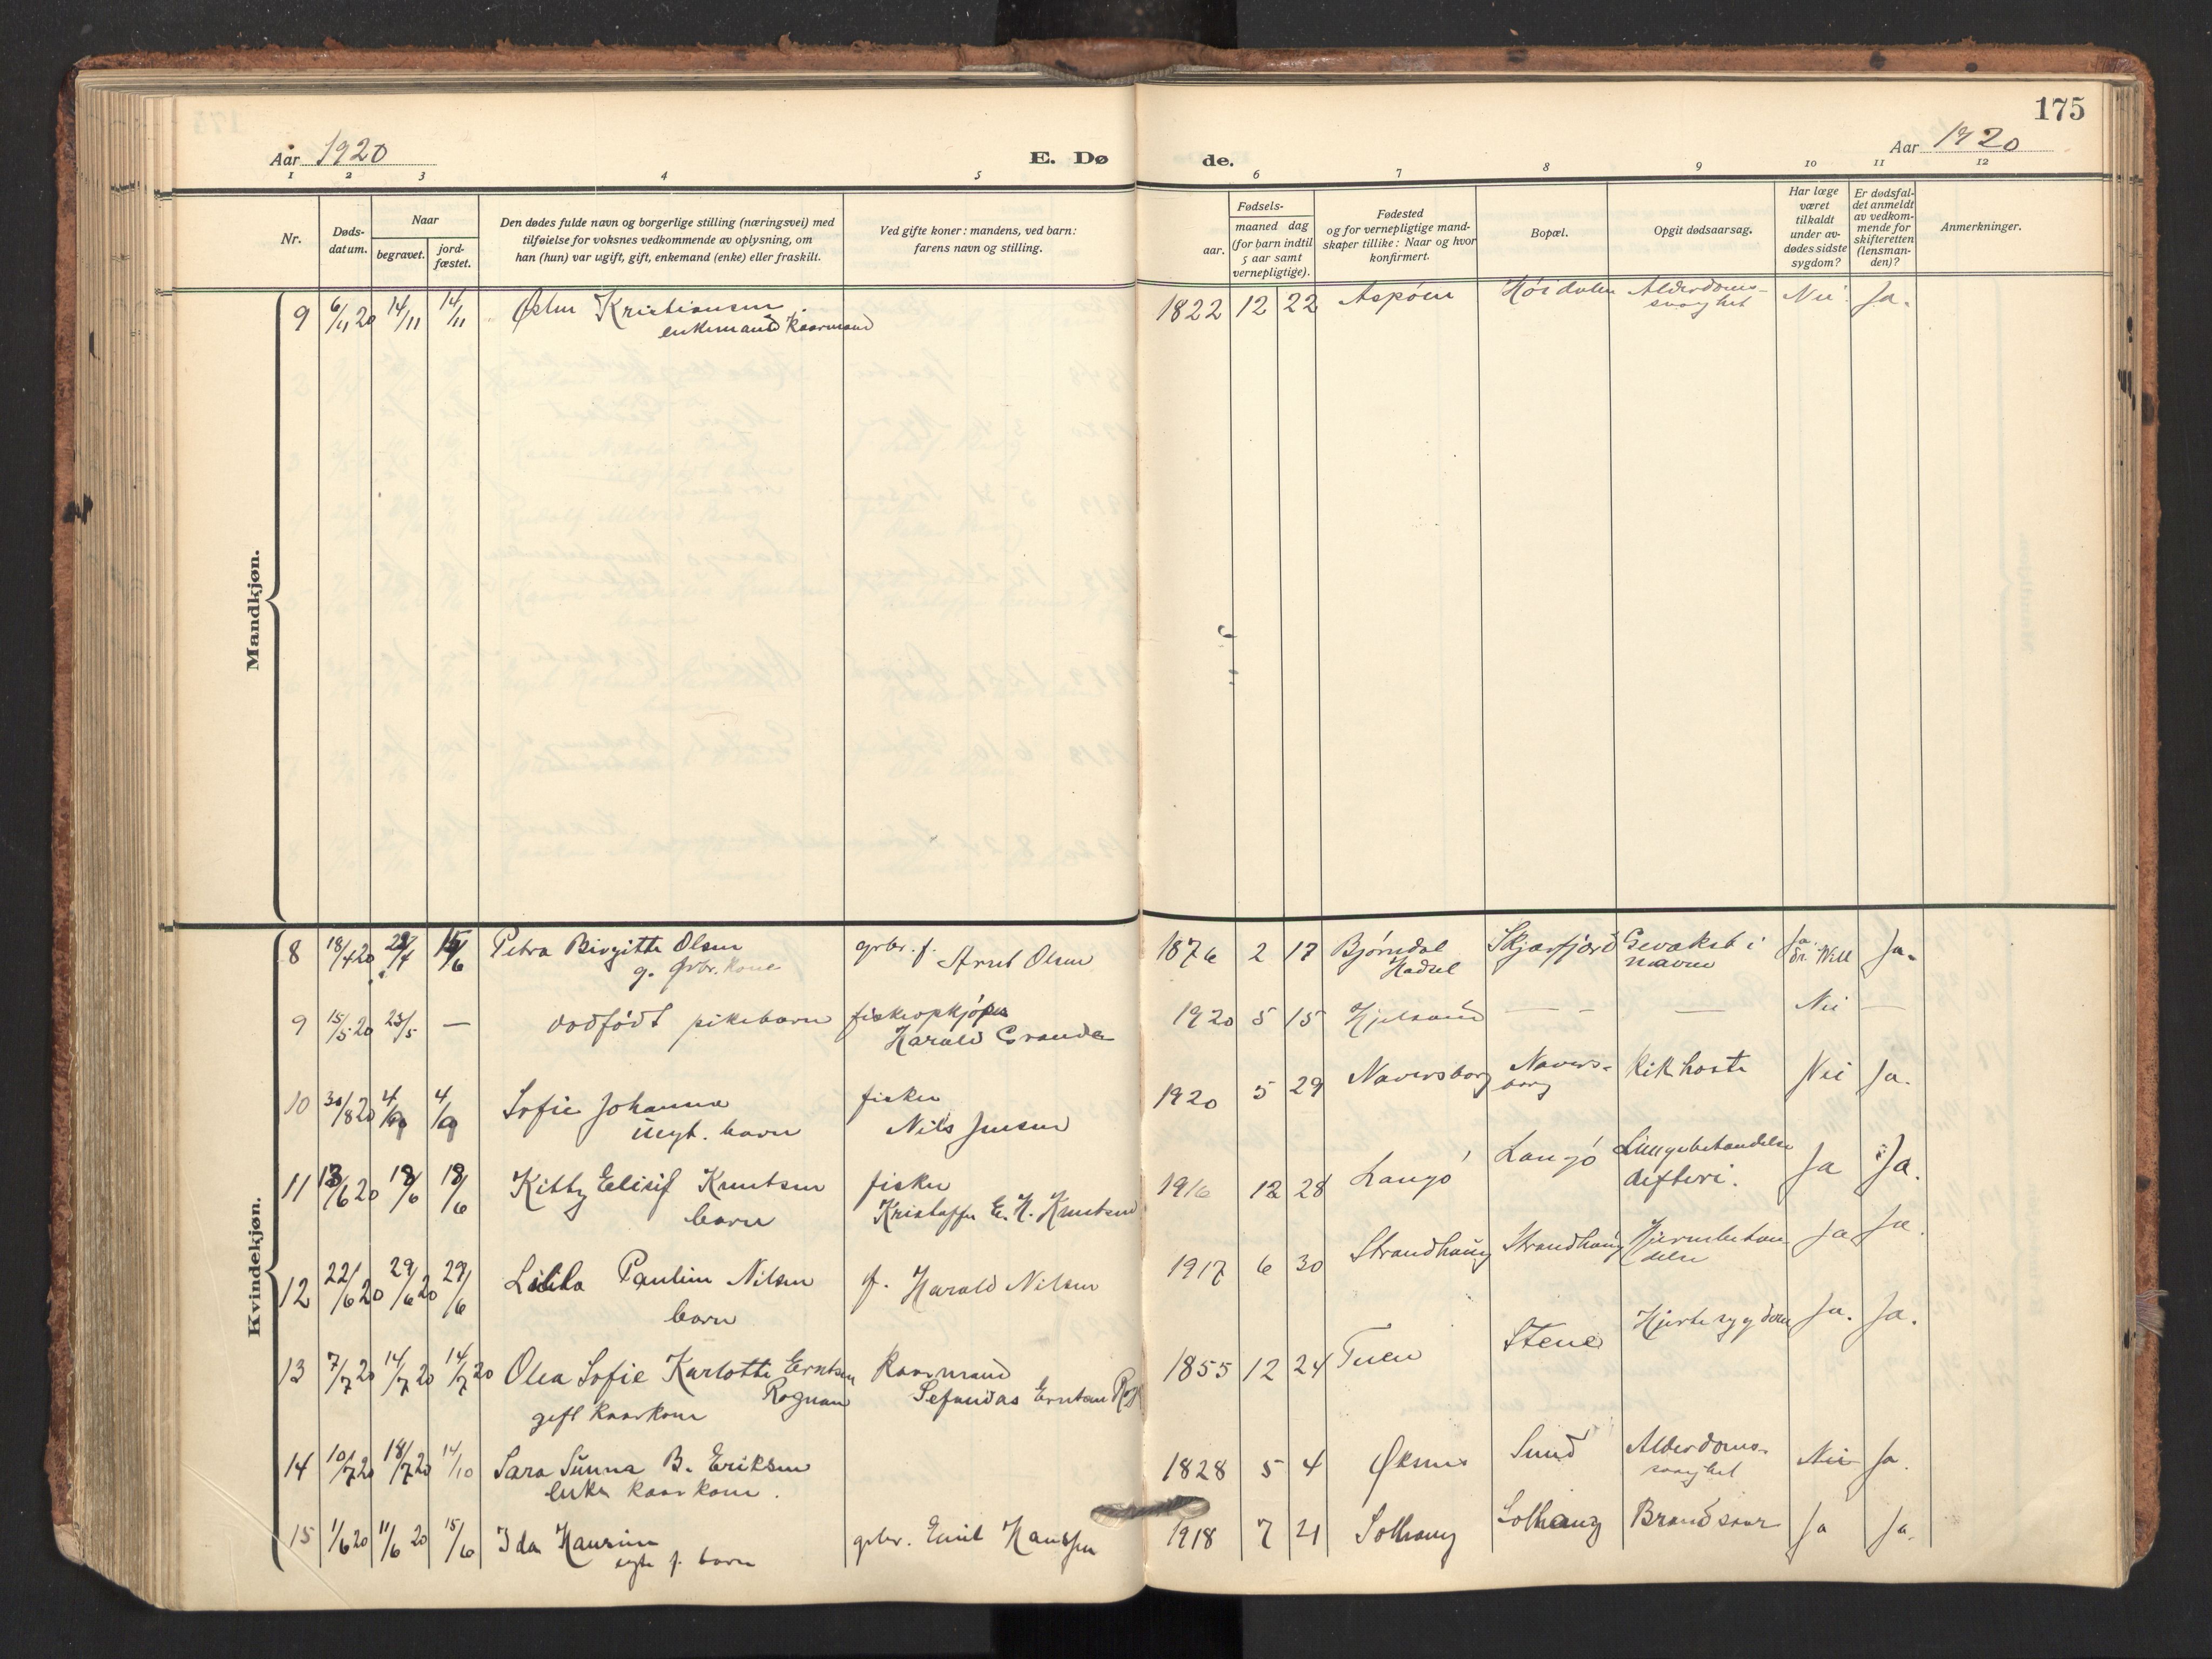 175
Aar 1920
E. Dø
de.
Aar 1920
1 2 3 4 5 6 7 8 9 10 11 12
Nr.
Døds-
datum.
Naar
begravet.
jord-
fæstet.
Den dødes fulde navn og borgerlige stilling (næringsvei) med
tilføielse for voksnes vedkommende av oplysning, om
han (hun) var ugift, gift, enkemand (enke) eller fraskilt.
Ved gifte koner: mandens, ved barn:
farens navn og stilling.
Fødsels-
aar.
maaned dag
(for barn indtil
5 aar samt
vernepligtige).
Fødested
og for vernepligtige mand-
skaper tillike: Naar og hvor
konfirmert.
Bopæl.
Opgit dødsaarsag.
Har læge
været
tilkaldt
under av-
dødes sidste
sygdom?
Er dødsfal-
det anmeldt
av vedkom-
mende for
skifteretten
(lensman-
den)?
Anmerkninger.
Mandkjøn.
9 6/11 20 14/11 14/11 Kristiansen 1822 12 22 Aspøen Alderdoms- Nei Ja.
enkemand kaarmand svaghet
Kvindekjøn.
8 18/4 20 Petra Birgitte Olsen grbr. f. 1876 2 17 Bjørndal Skjærfjord Ja. Ja.
g. grbr. kone Arnt Olsen Hadsel
9 15/5 20 23/5 — dødfødt pikebarn fiskeopkjøper 1920 5 15 — — — Nei —
Harald
10 30/8 20 4/9 4/9 Sofie Johanna fisker 1920 5 29 Naversborg Navers- Kikhoste Nei Ja.
barn Nils Jensen borg
11 13/6 20 18/6 18/6 Kitty Elisif Knutsen fisker 1916 12 28 Langø Langø Lungebetændelse Ja Ja.
barn Kristoffer E. H. Knutsen difteri.
12 22/6 20 29/6 20 29/6 Pauline Nilsen f. Harald Nilsen 1917 6 30 Strandhaug Strandhaug Ja Ja.
barn
13 7/7 20 14/7 20 14/7 20 Olea Sofie Karlotte Erntsen Kaarmand 1855 12 24 Tuen Stene Hjertesygdom Ja. Ja.
Rognan Sefanias Erntsen
gift kaarkone
14 10/7 20 18/7 20 14/10 Sara Sunna B. Eriksen 1828 5 4 Øksnes Sund Alderdoms- Nei Ja.
enke kaarkone. svaghet
15 1/6 20 11/6 20 15/6 Ida gbr. Emil Hanssen 1918 7 21 Solhaug Solhaug Brandsaar Ja Ja.
egte f. barn